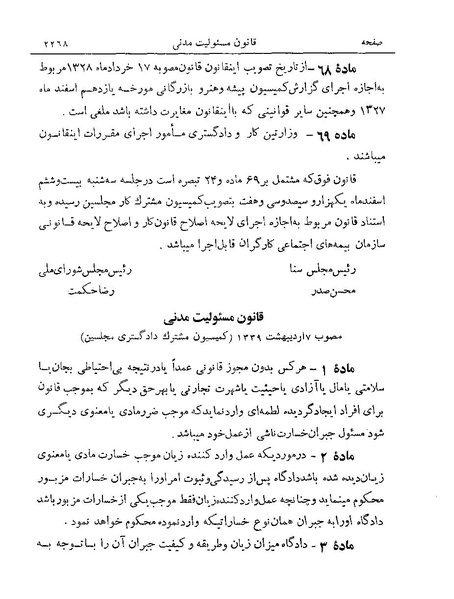 صفحه قانون مسئولیت مدنی ۲۲۶۸
مادهٔ ۶۸ - از تاریخ تصویب اینقانون قانون مصوبه ۱۷ خردادماه ۱۳۲۸ مربوط
به اجازه اجرای گزارش کمیسیون پیشه و هنر و بازرگانی مورخه یازدهم اسفند ماه
۱۳۲۷ و همچنین سایر قوانینی که با اینقانون مغایرت داشته باشد ملغی است .
مادهٔ ۶۹ - وزارتین کار و دادگستری مأمور اجرای مقررات اینقانون
میباشند .
قانون فوق که مشتمل بر ۶۹ ماده و ۲۴ تبصره است در جلسه سه شنبه بیست و ششم
اسفندماه یکهزار و سیصد و سی و هفت بتصویب کمیسیون مشترک کار مجلسین رسیده و به
استناد قانون مربوط به اجازه اجرای لایحه اصلاح قانون کار و اصلاح لایحه قانونی
سازمان بیمه‌های اجتماعی کارگران قابل اجرا میباشد .
رئیس مجلس سنا رئیس مجلس شورای ملی
محسن صدر رضا حکمت
قانون مسئولیت مدنی
مصوب ۷ اردیبهشت ۱۳۳۹ (کمیسیون مشترک دادگستری مجلسین)
مادهٔ ۱ - هر کس بدون مجوز قانونی عمداً یا در نتیجه بی‌احتیاطی بجان یا
سلامتی یا مال یا آزادی یا حیثیت یا شهرت تجارتی یا بهر حق دیگر که بموجب قانون
برای افراد ایجاد گردیده لطمه‌ای وارد نماید که موجب ضرر مادی یا معنوی دیگری
شود مسئول جبران خسارت ناشی از عمل خود میباشد .
مادهٔ ۲ - در موردیکه عمل وارد کننده زیان موجب خسارت مادی یا معنوی
زیان‌دیده شده باشد دادگاه پس از رسیدگی و ثبوت امر او را به جبران خسارات مزبور
محکوم مینماید و چنانچه عمل وارد کننده زیان فقط موجب یکی از خسارات مزبور باشد
دادگاه او را به جبران همان نوع خساراتیکه وارد نموده محکوم خواهد نمود .
مادهٔ ۳ - دادگاه میزان زیان و طریقه و کیفیت جبران آن را با توجه به